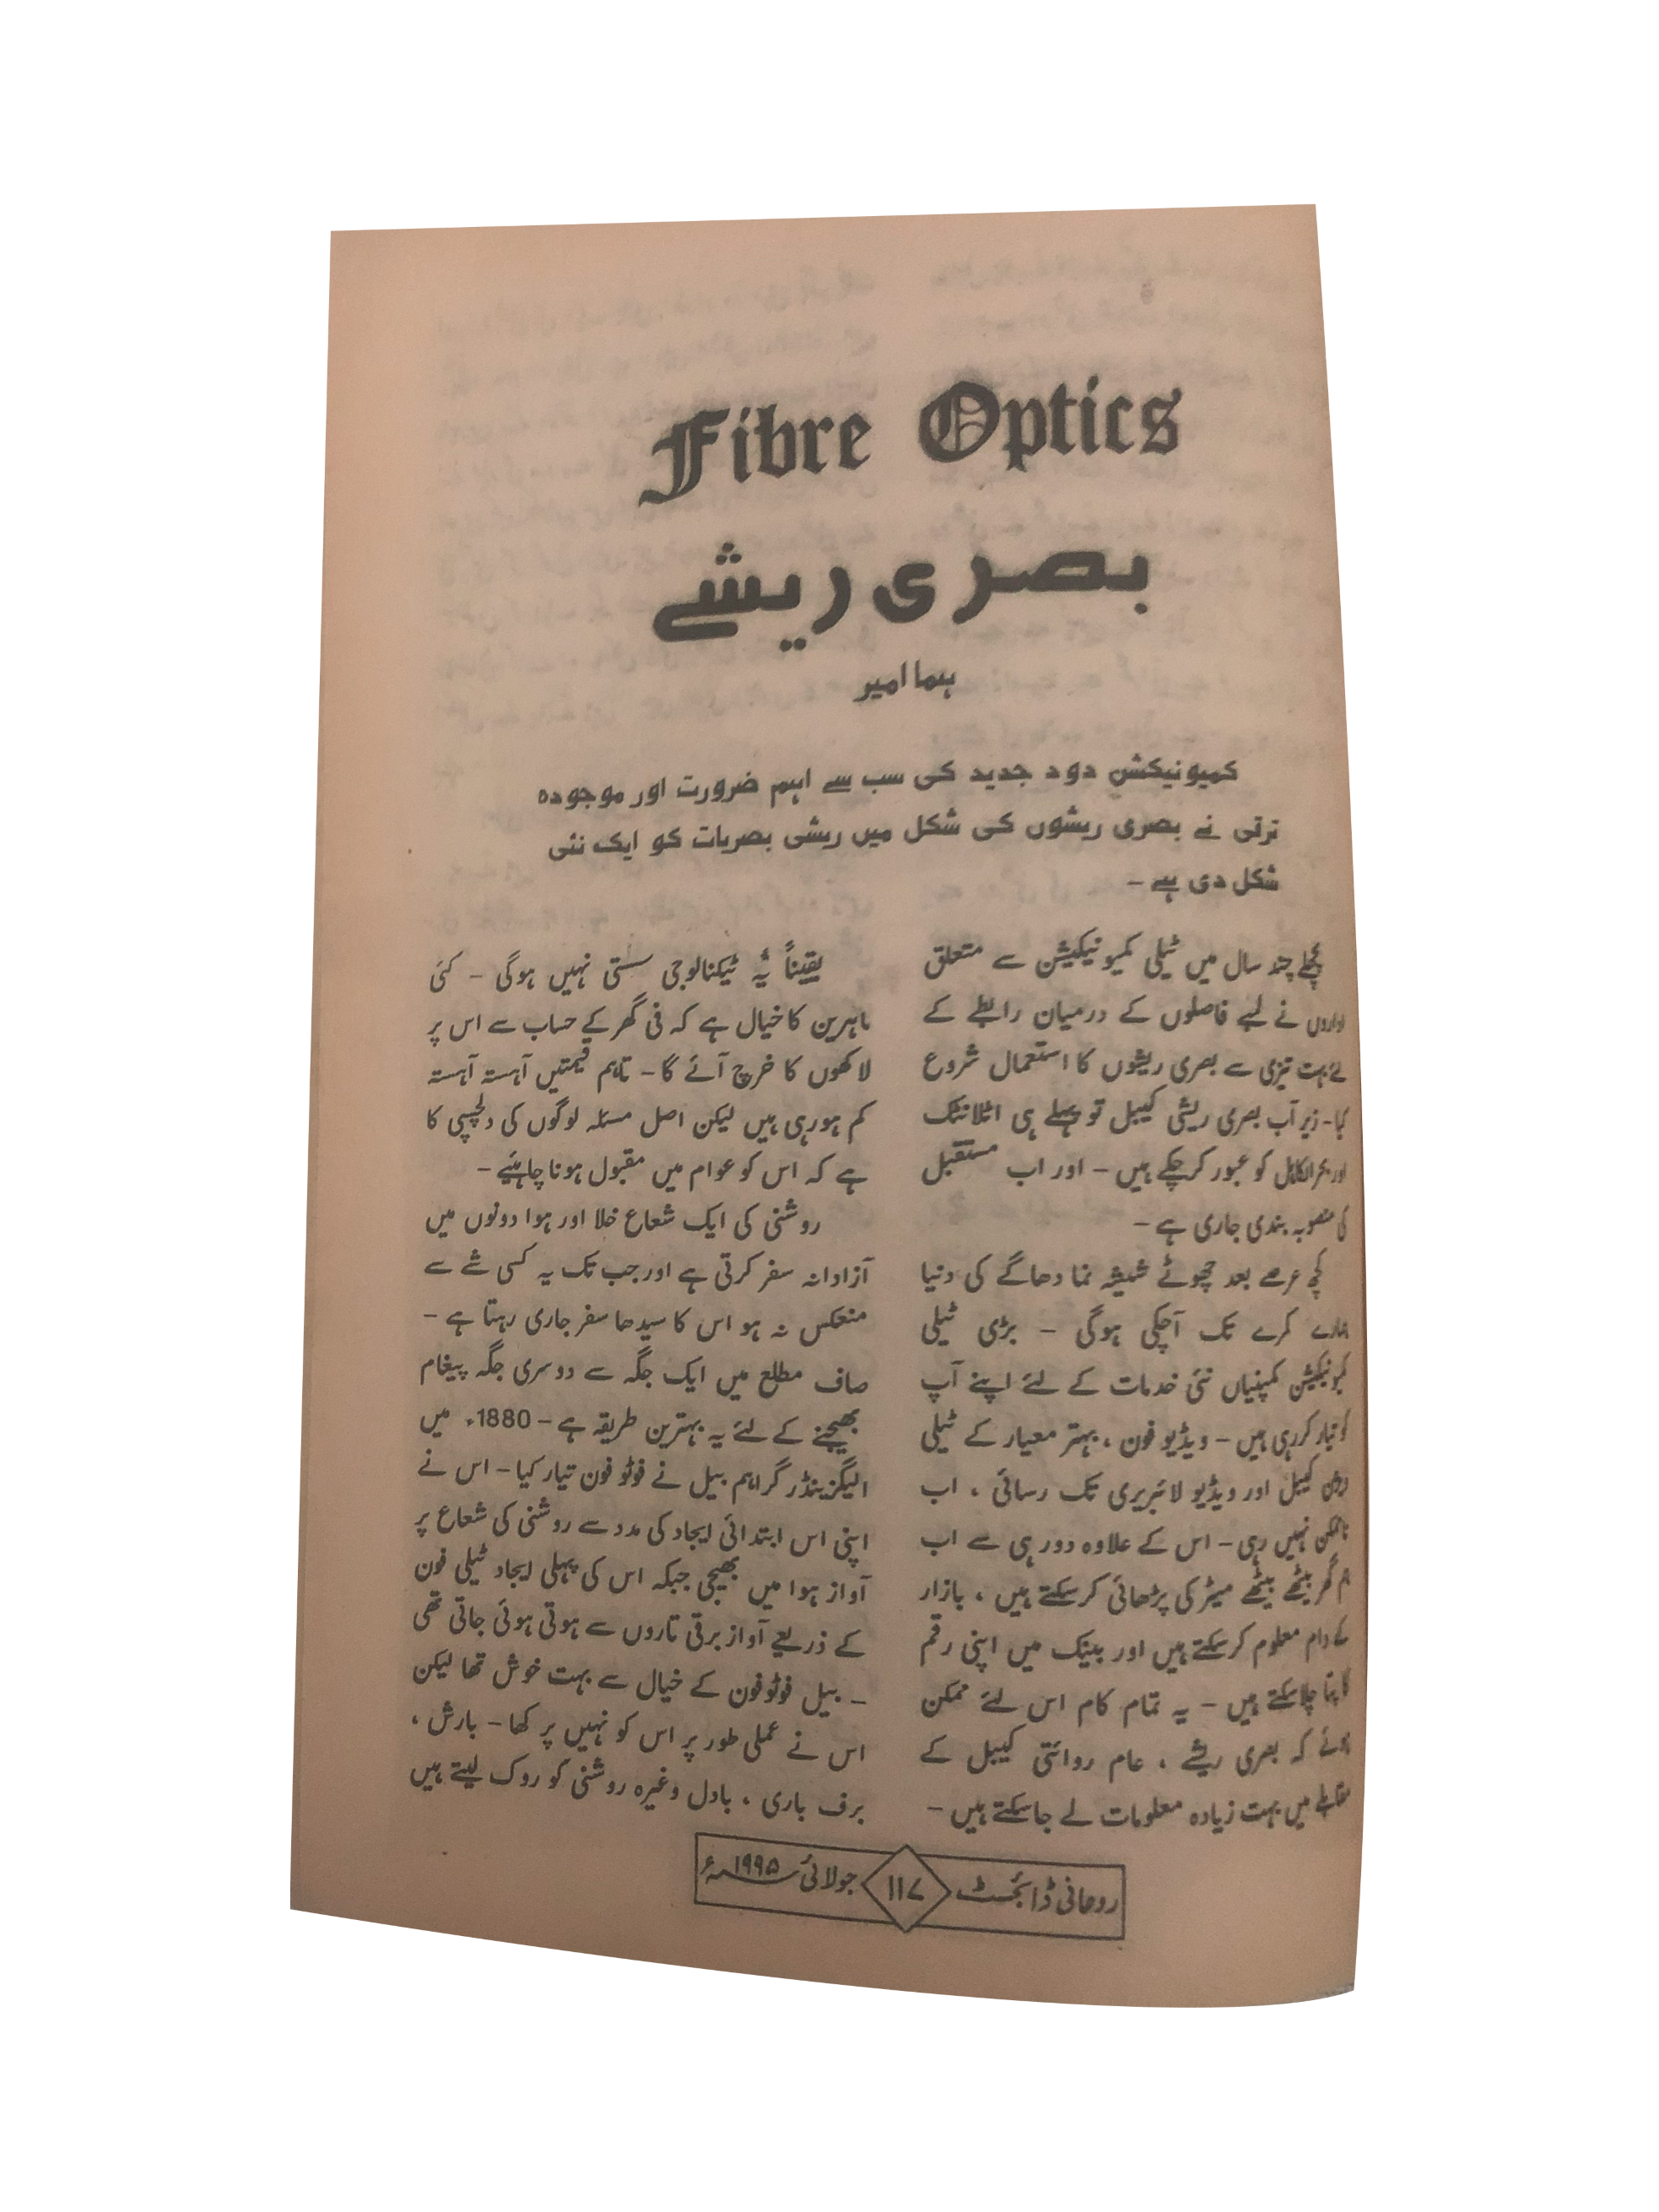 Fibre Optics
بصری ریشے
ہما امیر
کمیونیکشن دود جدید کی سب سے اہم ضرورت اور موجودہ
ترقی نے بصری ریشوں کی شکل میں ریشی بصریات کو ایک نئی
شکل دی ہے –
پچھلے چند سال میں ٹیلی کمیونیکیشن سے متعلق
اداروں نے لمبے فاصلوں کے درمیان رابطے کے
لئے بہت تیزی سے بصری ریشوں کا استعمال شروع
کیا – زیر آب بصری ریشی کیبل تو پہلے ہی اٹلانٹک
اور بحرالکاہل کو عبور کرچکے ہیں – اور اب مستقبل
کی منصوبہ بندی جاری ہے –
کچھ عرصے بعد چھوٹے شیشہ نما دھاگے کی دنیا
ہمارے کمرے تک آچکی ہوگی – بڑی ٹیلی
کمیونیکیشن کمپنیاں نئی خدمات کے لئے اپنے آپ
کو تیار کررہی ہیں – ویڈیو فون ، بہتر معیار کے ٹیلی
ویژن کیبل اور ویڈیو لائبریری تک رسائی ، اب
ناممکن نہیں رہی – اس کے علاوہ دور ہی سے اب
ہم گھر بیٹھے بیٹھے میٹر کی پڑھائی کرسکتے ہیں ، بازار
کے دام معلوم کرسکتے ہیں اور بینک میں اپنی رقم
کا پتا چلاسکتے ہیں – یہ تمام کام اس لئے ممکن
ہوئے کہ بصری ریشے ، عام روائتی کیبل کے
مقابلے میں بہت زیادہ معلومات لے جاسکتے ہیں –
یقیناً یہ ٹیکنالوجی سستی نہیں ہوگی – کئی
ماہرین کا خیال ہے کہ فی گھر کے حساب سے اس پر
لاکھوں کا خرچ آئے گا – تاہم قیمتیں آہستہ آہستہ
کم ہورہی ہیں لیکن اصل مسئلہ لوگوں کی دلچسپی کا
ہے کہ اس کو عوام میں مقبول ہونا چاہئیے –
روشنی کی ایک شعاع خلا اور ہوا دونوں میں
آزادانہ سفر کرتی ہے اور جب تک یہ کسی شے سے
منعکس نہ ہو اس کا سیدھا سفر جاری رہتا ہے –
صاف مطلع میں ایک جگہ سے دوسری جگہ پیغام
بھیجنے کے لئے یہ بہترین طریقہ ہے – 1880ء میں
الیگزینڈر گراہم بیل نے فوٹو فون تیار کیا – اس نے
اپنی اس ابتدائی ایجاد کی مدد سے روشنی کی شعاع پر
آواز ہوا میں بھیجی جبکہ اس کی پہلی ایجاد ٹیلی فون
کے ذریعے آواز برقی تاروں سے ہوتی ہوئی جاتی تھی
– بیل فوٹوفون کے خیال سے بہت خوش تھا لیکن
اس نے عملی طور پر اس کو نہیں پرکھا – بارش ،
برف باری ، بادل وغیرہ روشنی کو روک لیتے ہیں
روحانی ڈائجسٹ ۱۱۷ جولائی ۱۹۹۵ء